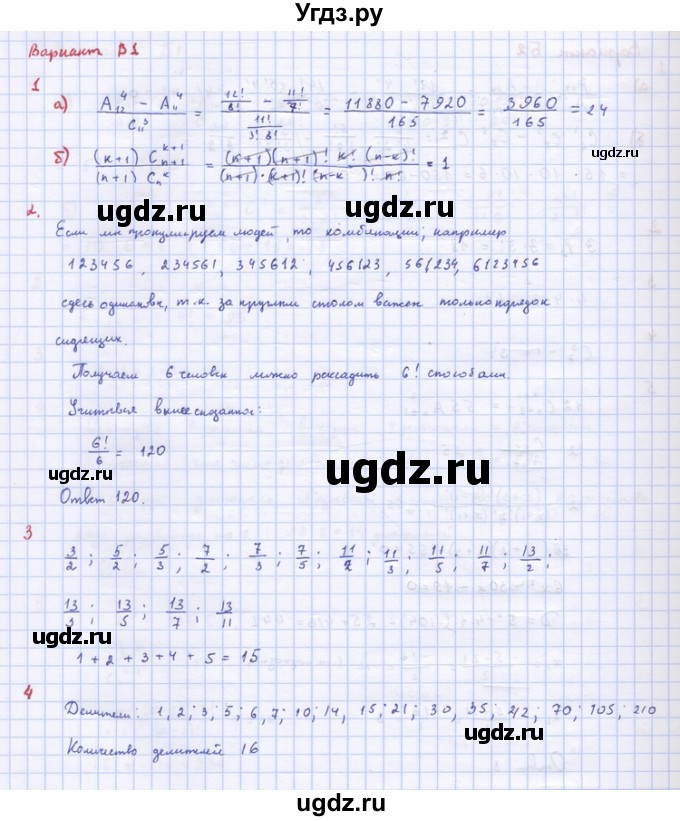 Угдз.ру
Вариант B1
1
а) (A₁₂⁴ − A₁₁⁴) / C₁₁³ = (12!/8! − 11!/7!) / (11!/3! 8!) = (11880 − 7920) / 165 = 3960 / 165 = 24
б) (k+1) C_{n+1}^{k+1} / (n+1) C_n^k = (k+1)(n+1)! k! (n-k)! / (n+1)·(k+1)! (n-k)! n! = 1
2.
Если мы пронумеруем людей, то комбинации, например
123456, 234561, 345612, 456123, 561234, 6123456
сдесь одинаковы, т.к. за круглым столом важен только порядок
сидящих.
Получаем 6 человек можно рассадить 6! способами.
Учитывая вышесказанное:
6!/6 = 120
Ответ 120.
3
3/2; 5/2; 5/3; 7/2; 7/3; 7/5; 11/2; 11/3; 11/5; 11/7; 13/2;
13/3; 13/5; 13/7; 13/11
1+2+3+4+5=15
4
Делители: 1, 2; 3; 5; 6, 7; 10; 14, 15; 21; 30, 35; 42; 70; 105; 210
Количество делителей 16
ugdz.ru
ugdz.ru
ugdz.ru
ugdz.ru
ugdz.ru
ugdz.ru
ugdz.ru
ugdz.ru
ugdz.ru
ugdz.ru
ugdz.ru